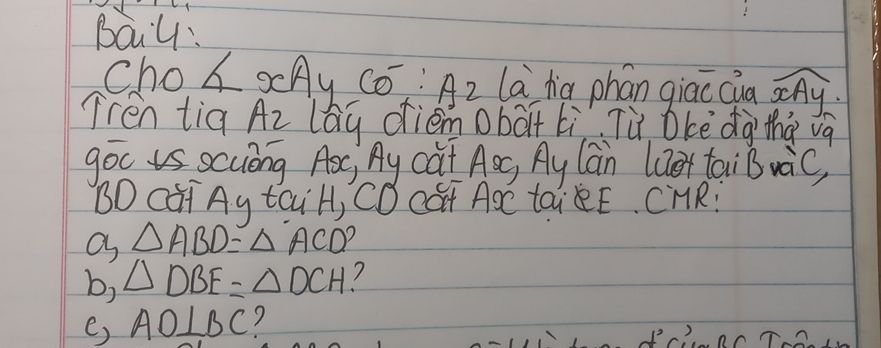 Bài 4:
Cho ∠ xAy Có : Az là tia phân giác của xAy.
Trên tia Az lấy điểm D bất kì. Từ D kẻ đg thg và
góc vs xuống Ax, Ay cắt Ax, Ay lần lượt tại B và C,
BD cắt Ay tại H, CD cắt Ax tại E. CMR:
a, △ ABD = △ ACD?
b, △ DBE = △ DCH?
c, AD⊥BC?